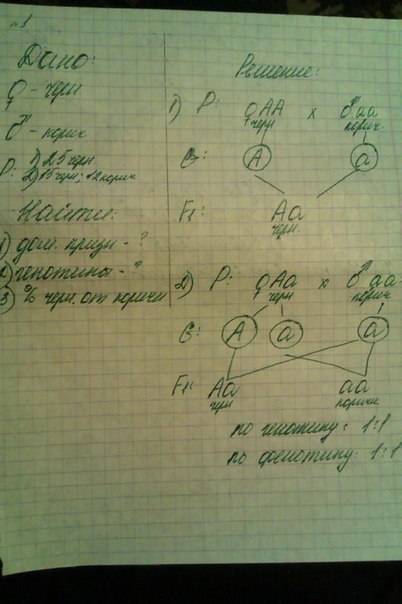 №1
Дано:
♀ - черн
♂ - корич
P: 1) 25 черн
2) 15 черн;
Найти:
1) дом. призн - ?
2) генотипы - ?
3) % черн. от коричн
Решение:
1) P: ♀ AA x ♂ aa
черн корич
G: A a
F1: Aa
черн.
2) P: ♀ Aa x ♂ aa
черн корич
G: A a a
F1: Aa aa
черн коричн
по генотипу: 1:1
по фенотипу: 1:1